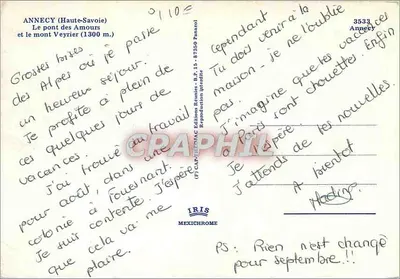 ANNECY (Haute-Savoie)
Le pont des Amours
et le mont Veyrier (1300 m.)
1,10€
3533
Annecy
Grosses bises
des Alpes où je passe
un heureux séjour.
Je profite à plein de
ces quelques jours de
vacances.
J'ai trouvé du travail
pour août, dans une
colonie à Fouesnant.
Je suis contente. J'espère
que cela va me
plaire.
(C) CAP-THEOJAC Editions Réunies - B.P. 15 - 87350 Panazol
Reproduction interdite
IRIS
MEXICHROME
CRAPHIL
Cependant
Tu dois venir à la
maison - je ne l'oublie
pas.
J'imagine que tes vacances
à Paris sont chouettes. Enfin
je l'espère
J'attends de tes nouvelles.
A bientôt
PS: Rien n'est changé
pour septembre!!